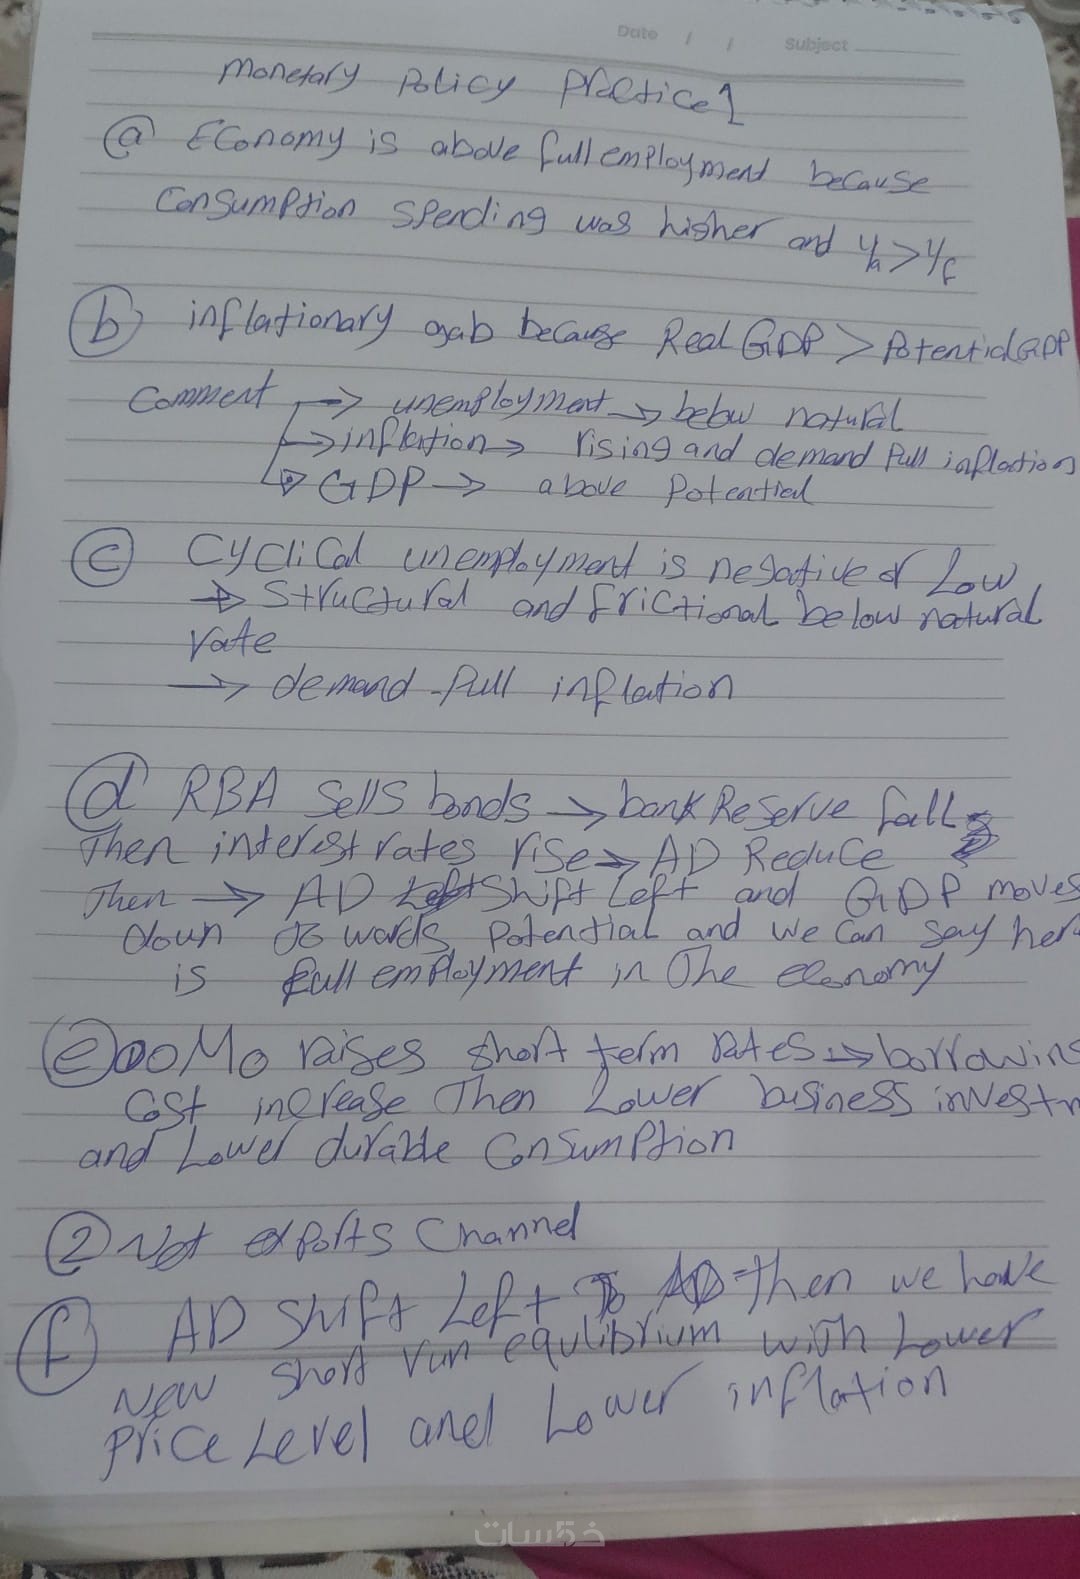 Date / / Subject
Monetary Policy Practice 1
(a) Economy is above full employment because
Consumption spending was higher and Ya > Yf
(b) inflationary gab because Real GDP > Potential GDP
Comment → unemployment → below natural
→ inflation → rising and demand Pull inflation
→ GDP → above Potential
(c) Cyclical unemployment is negative or Low
→ Structural and frictional below natural
rate
→ demand-Pull inflation
(d) RBA Sells bonds → bank Reserve fall
Then interest rates rise → AD Reduce
Then → AD Shift Left and GDP moves
down to words Potential and we can say her
is full employment in The economy
(e) (1) OMO raises short term rates → borrowing
Cost increase Then Lower business investm
and Lower durable Consumption
(2) Net exports Channel
(f) AD Shift Left Then we have
New short run equlibrium with Lower
Price Level and Lower inflation
خمسات